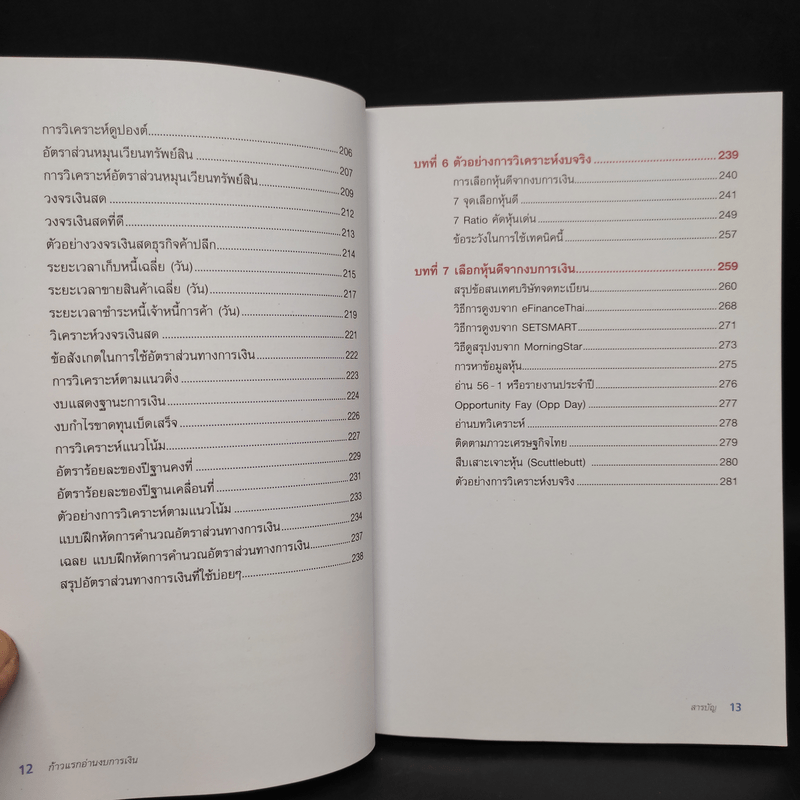 การวิเคราะห์ดูปองต์ 206
อัตราส่วนหมุนเวียนทรัพย์สิน 207
การวิเคราะห์อัตราส่วนหมุนเวียนทรัพย์สิน 209
วงจรเงินสด 212
วงจรเงินสดที่ดี 213
ตัวอย่างวงจรเงินสดธุรกิจค้าปลีก 214
ระยะเวลาเก็บหนี้เฉลี่ย (วัน) 215
ระยะเวลาขายสินค้าเฉลี่ย (วัน) 217
ระยะเวลาชำระหนี้เจ้าหนี้การค้า (วัน) 219
วิเคราะห์วงจรเงินสด 221
ข้อสังเกตในการใช้อัตราส่วนทางการเงิน 222
การวิเคราะห์ตามแนวดิ่ง 223
งบแสดงฐานะการเงิน 224
งบกำไรขาดทุนเบ็ดเสร็จ 226
การวิเคราะห์แนวโน้ม 227
อัตราร้อยละของปีฐานคงที่ 229
อัตราร้อยละของปีฐานเคลื่อนที่ 231
ตัวอย่างการวิเคราะห์ตามแนวโน้ม 233
แบบฝึกหัดการคำนวณอัตราส่วนทางการเงิน 234
เฉลย แบบฝึกหัดการคำนวณอัตราส่วนทางการเงิน 237
สรุปอัตราส่วนทางการเงินที่ใช้บ่อยๆ 238
12 ก้าวแรกอ่านงบการเงิน
บทที่ 6 ตัวอย่างการวิเคราะห์งบจริง 239
การเลือกหุ้นดีจากงบการเงิน 240
7 จุดเลือกหุ้นดี 241
7 Ratio คัดหุ้นเด่น 249
ข้อระวังในการใช้เทคนิคนี้ 257
บทที่ 7 เลือกหุ้นดีจากงบการเงิน 259
สรุปข้อสนเทศบริษัทจดทะเบียน 260
วิธีการดูงบจาก eFinanceThai 268
วิธีการดูงบจาก SETSMART 271
วิธีดูสรุปงบจาก MorningStar 273
การหาข้อมูลหุ้น 275
อ่าน 56 - 1 หรือรายงานประจำปี 276
Opportunity Fay (Opp Day) 277
อ่านบทวิเคราะห์ 278
ติดตามภาวะเศรษฐกิจไทย 279
สืบเสาะเจาะหุ้น (Scuttlebutt) 280
ตัวอย่างการวิเคราะห์งบจริง 281
สารบัญ 13